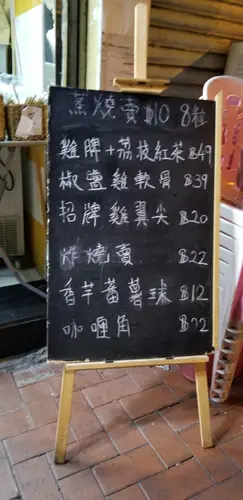 蒸燒賣$10 8粒
雞髀+荔枝紅茶$49
椒鹽雞軟骨 $39
招牌雞翼尖 $20
炸燒賣 $22
香芋蕃薯球 $12
咖喱角 $22